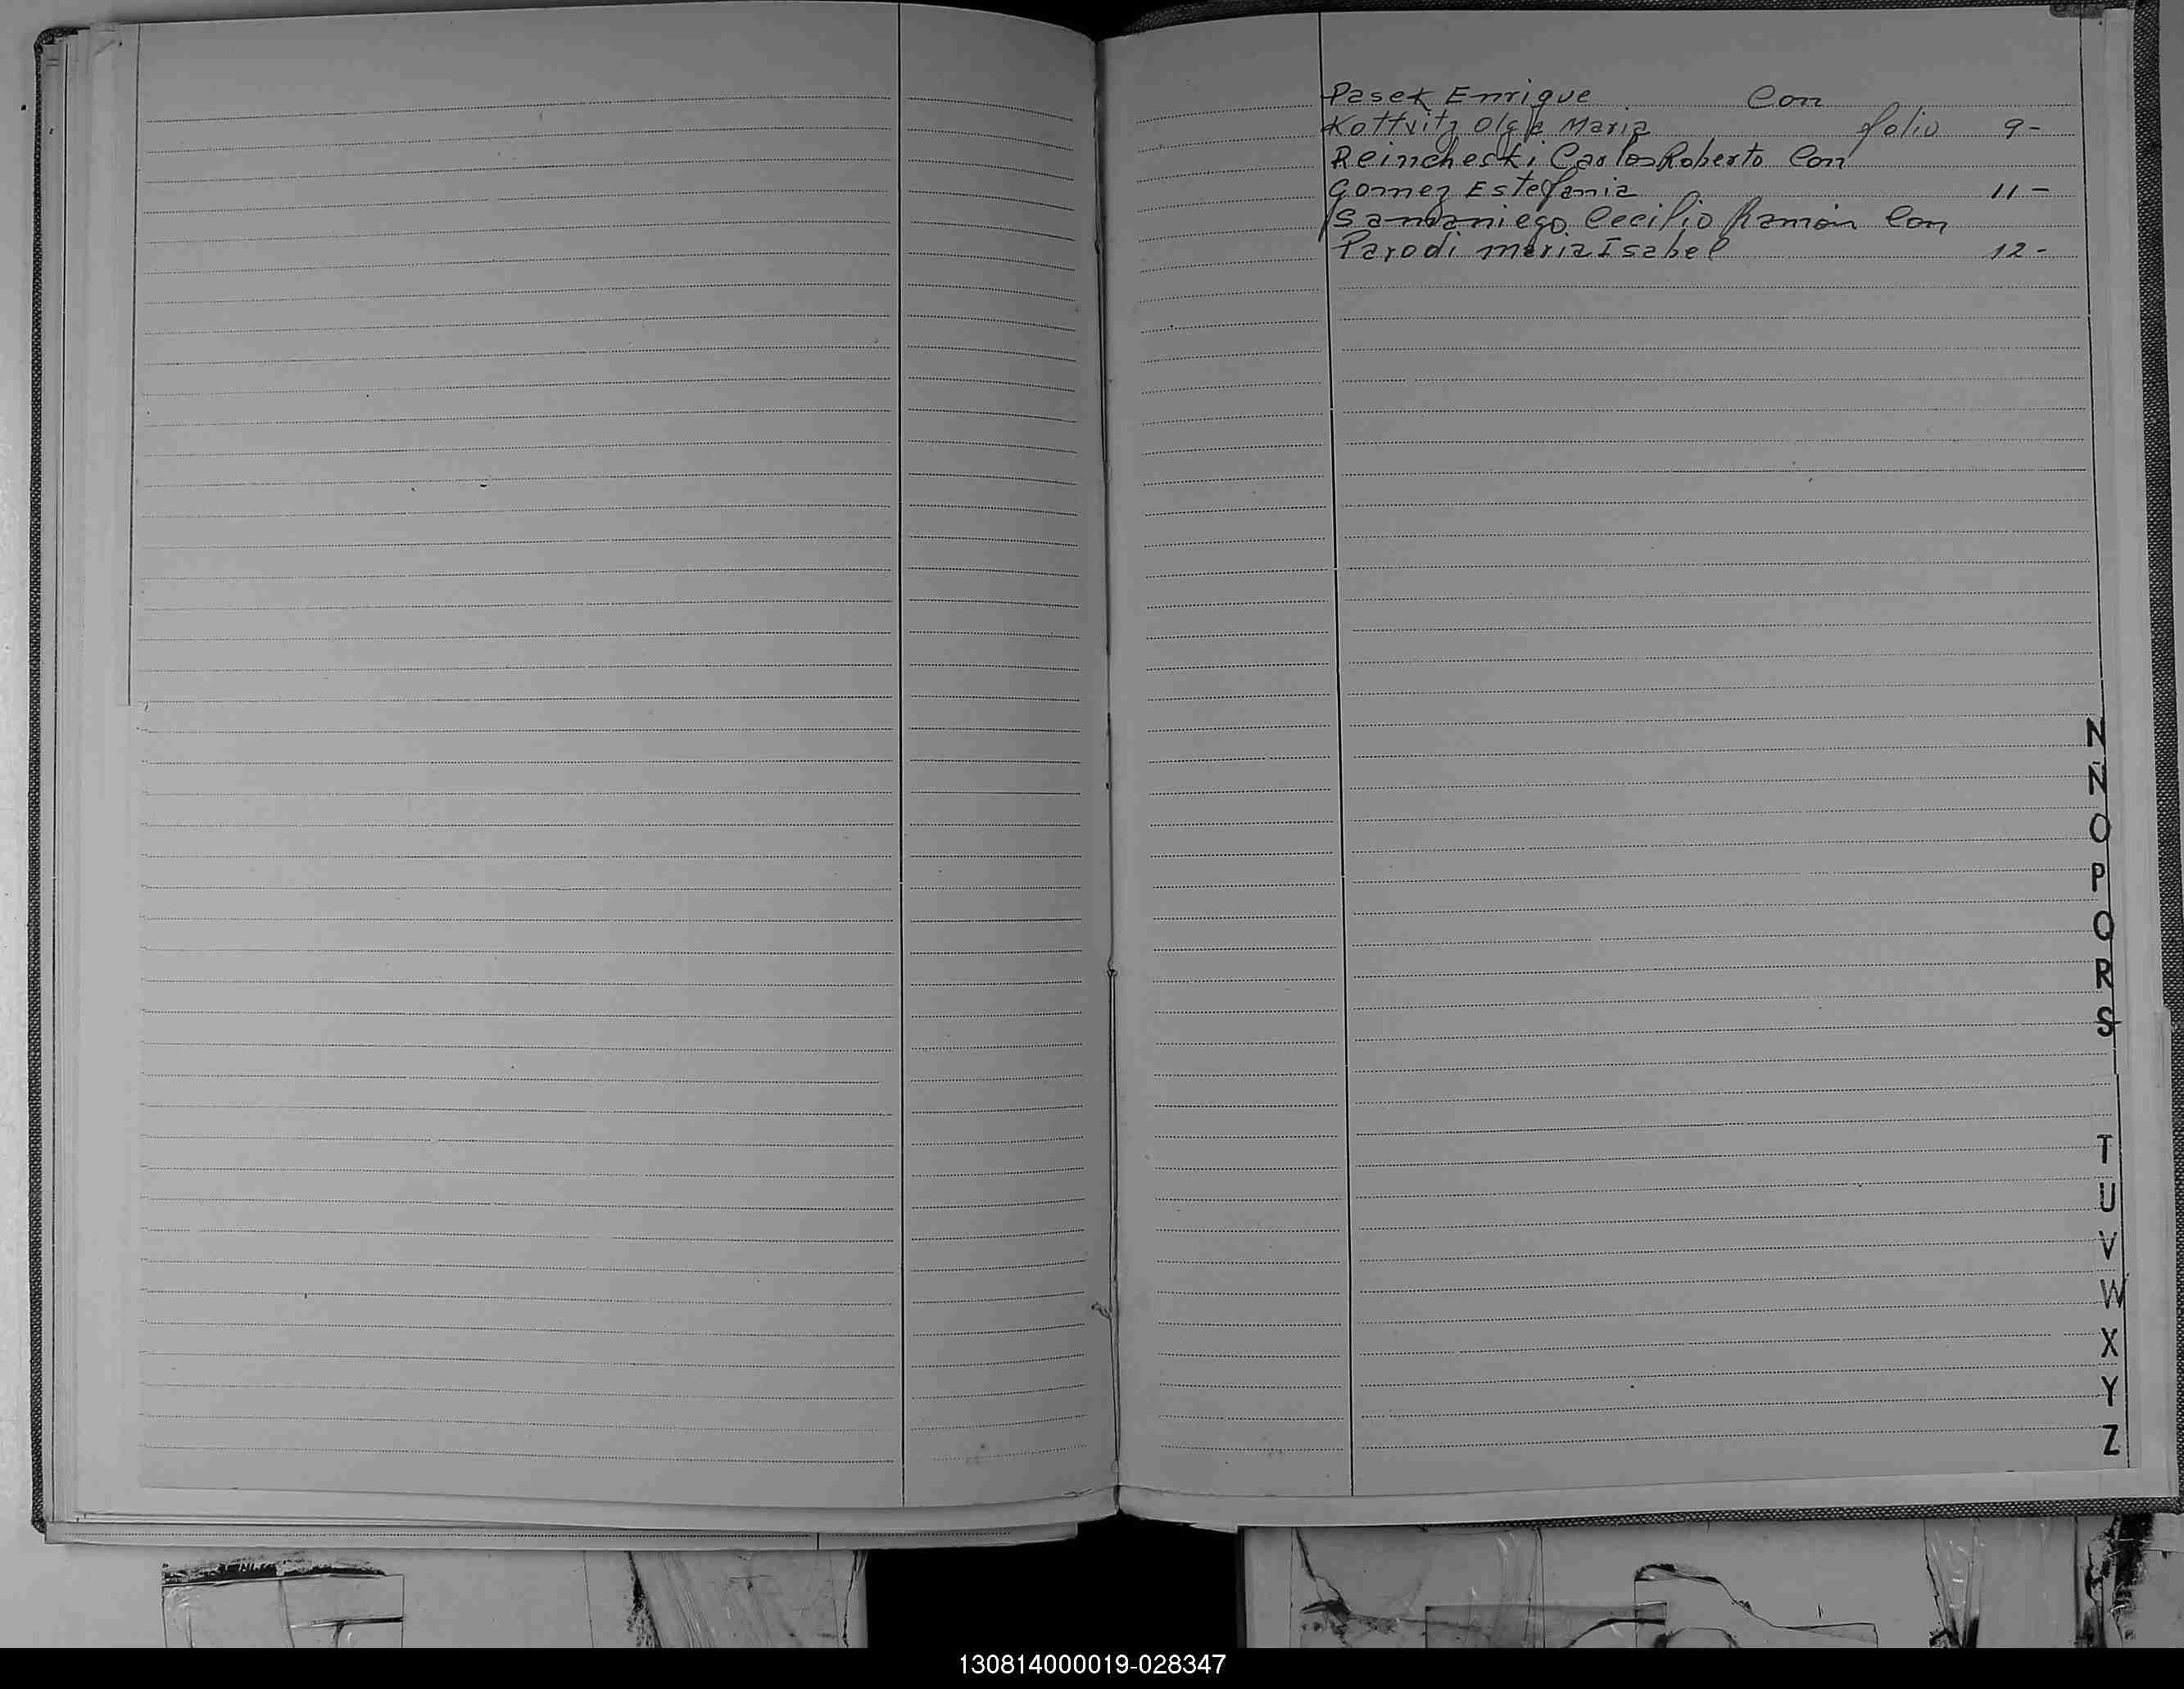 Pasek Enrique Con
Kottvitz Olga Maria folio 9-
Reincheski Carlos Roberto Con
Gomez Estefania 11-
Samaniego Cecilio Ramón Con
Parodi maria Isabel 12-
N
Ñ
O
P
Q
R
S
T
U
V
W
X
Y
Z
130814000019-028347